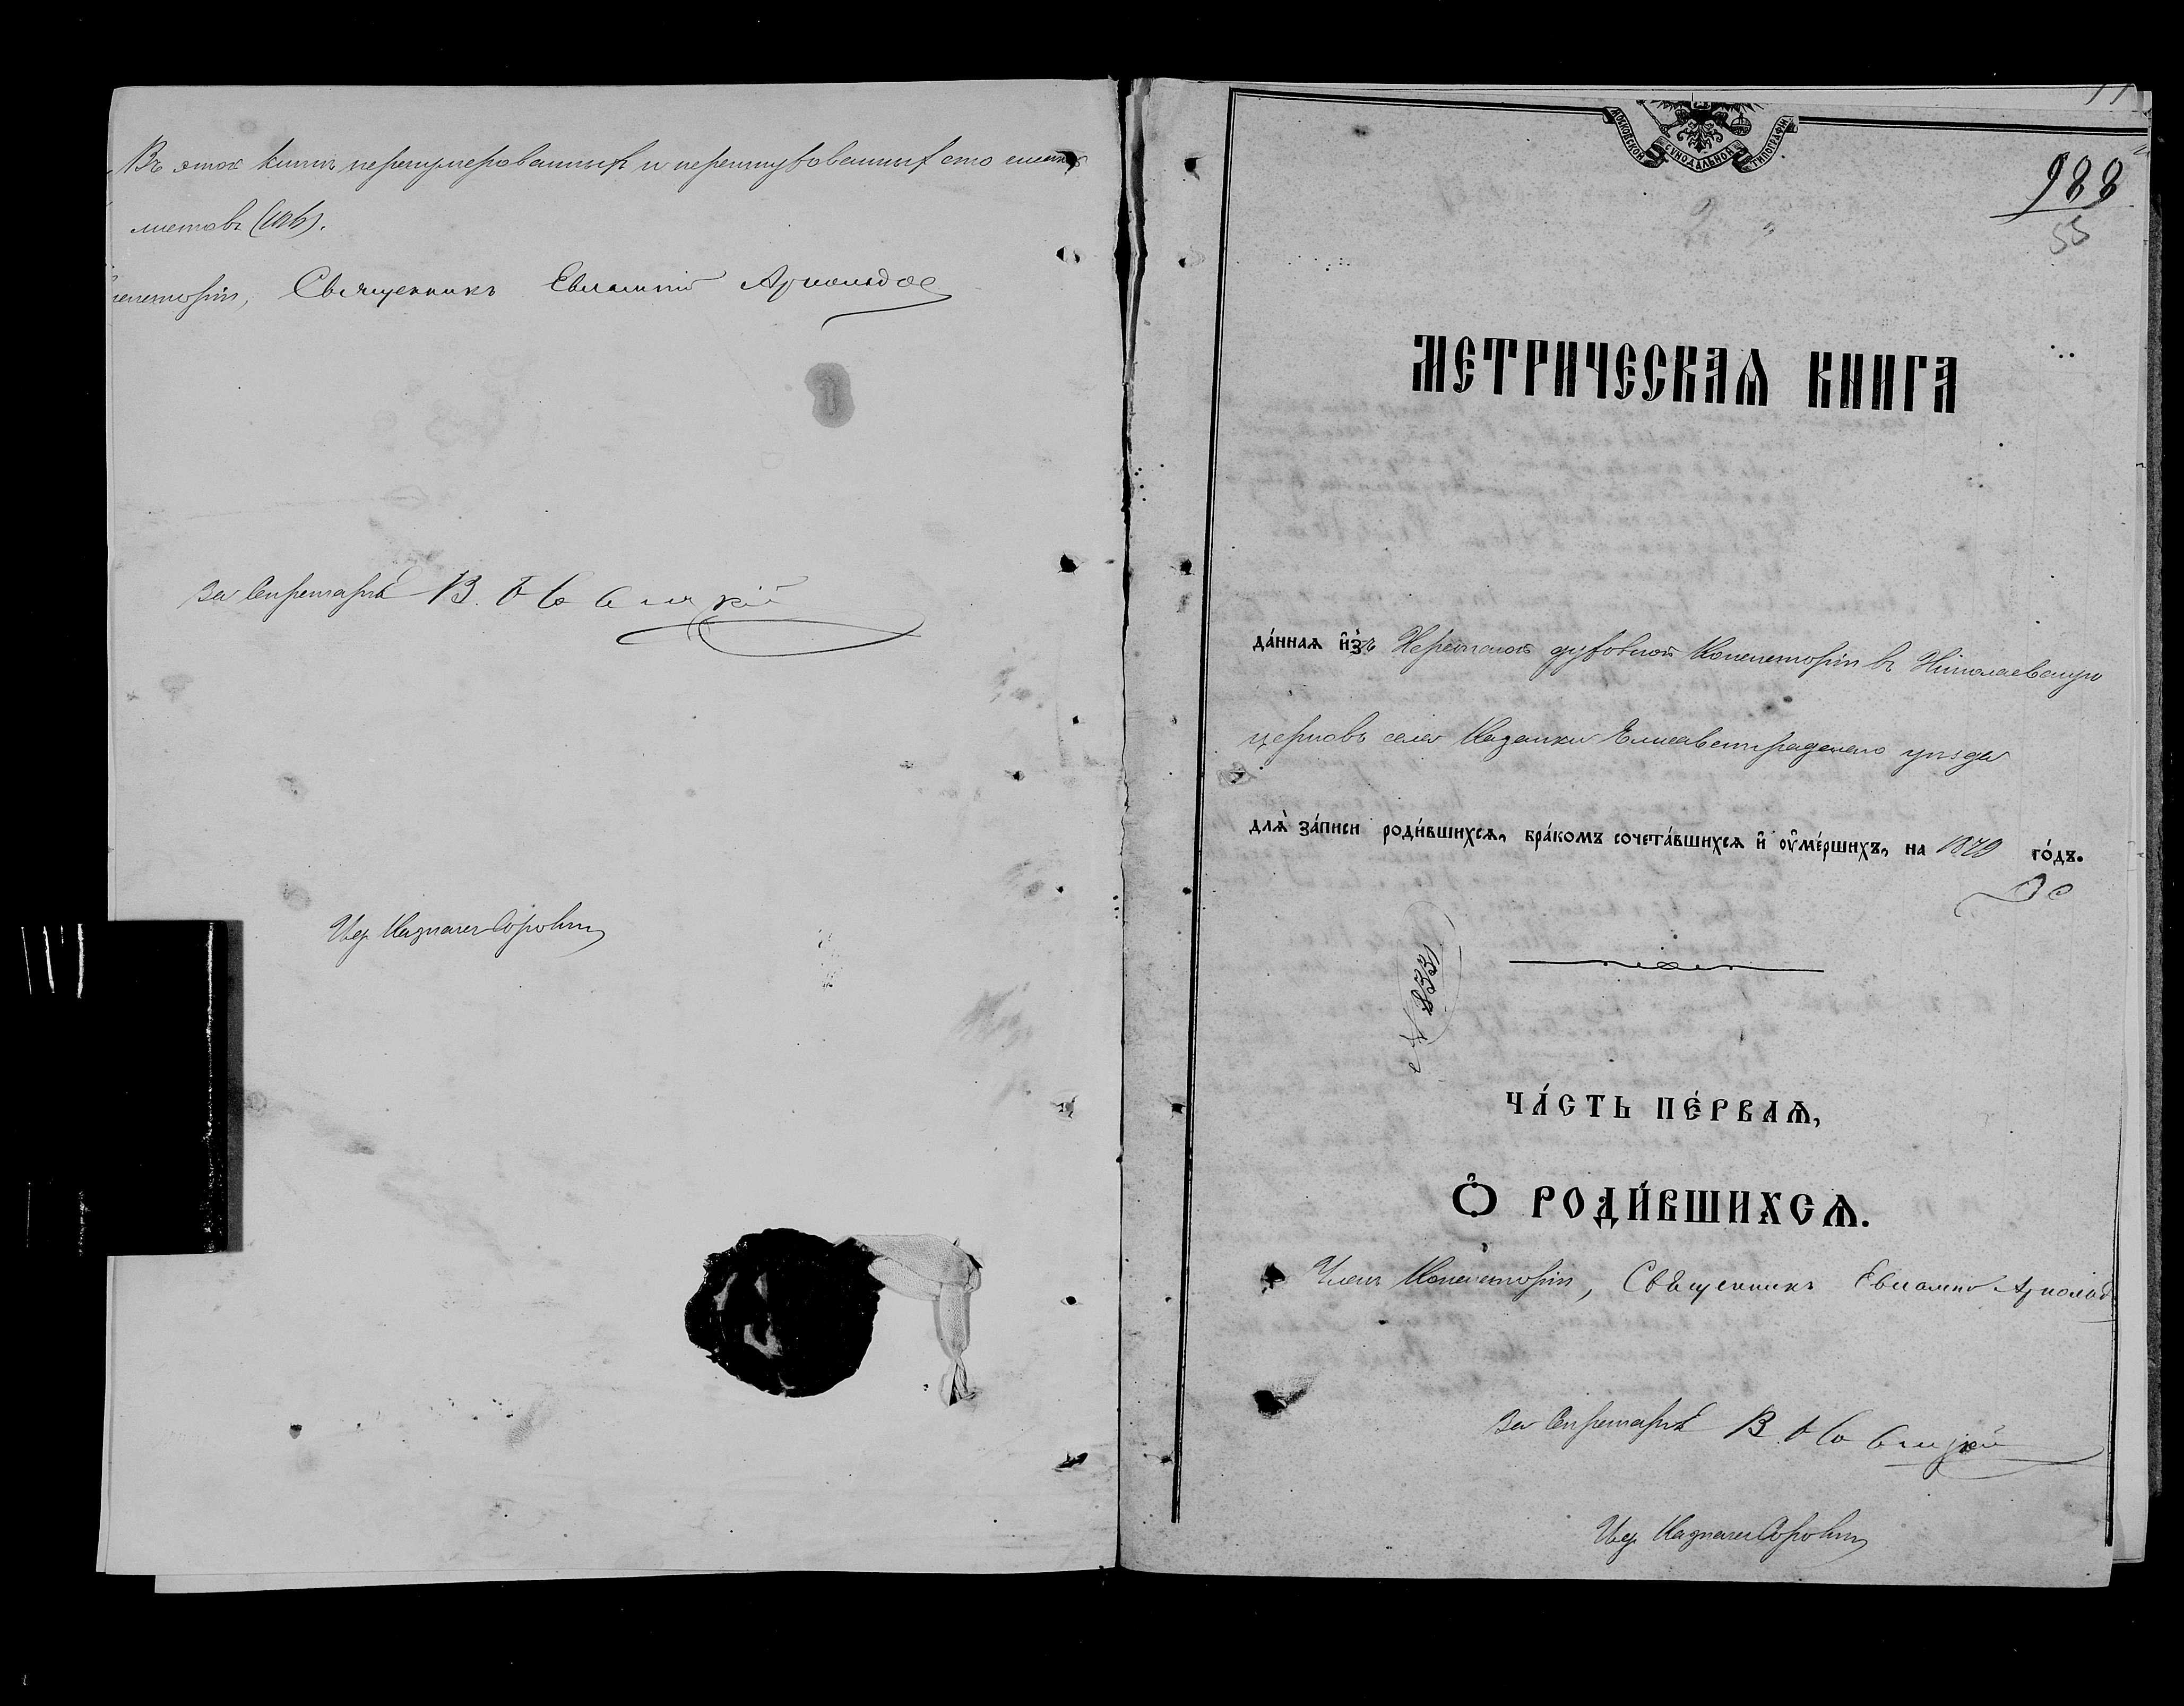 Въ этой книгѣ перенумерованныхъ и перешнурованныхъ сто шесть
листовъ (106).
Консисторіи, Священникъ Евлампій Арнольдов
За Секретаря В.
Казначея
МОСКОВСКОЙ СУНОДАЛЬНОЙ ТИПОГРАФІИ
988
55
МЕТРИЧЕСКАѦ КНИГА
да́ннаѧ и҆зъ Херсонской духовной Консисторіи въ Николаевскую
церковь села Казанки Елисаветградскаго уѣзда
длѧ̀ за́писи роди́вшихсѧ, бра́комъ сочета́вшихсѧ и҆ ᲂу҆ме́ршихъ, на 1879 го́дъ.
№ 833
ЧА́СТЬ ПЕ́РВАѦ,
Ѽ РОДИ́ВШИХСѦ.
Членъ Консисторіи, Священникъ Евлампій Арнольд
За Секретаря В.
Казначея